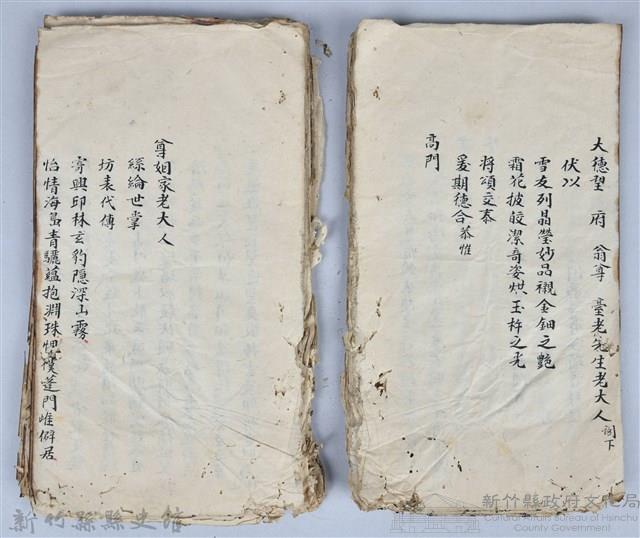 大德望　府　翁尊　臺老先生老大人 閣下
伏以
雪友列晶瑩妙品襯金鈿之艷
霜花披皎潔奇姿烘玉杵之光
將頌交泰
爰期德合 恭惟
高門
尊姻家老大人
絲綸世掌
坊表代傳
寄興邱林玄豹隱深山霧
怡情海島青驪蘊抱淵珠 樸蓬門惟僻居
新竹縣縣史館
新竹縣政府文化局
Cultural Affairs Bureau of Hsinchu
County Government